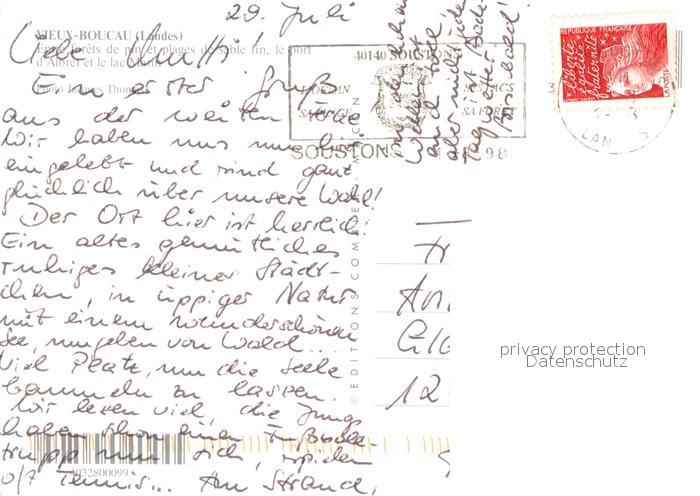 29. Juli
VIEUX-BOUCAU (Landes)
Entre forêts de pin et plages de sable fin, le port
d'Albret et le lac Marin
Photo Jacques Thomas
Liebe Mutti!
Ein erster Gruß
aus der weiten Ferne
Wir haben uns nun hier
eingelebt und sind ganz
glücklich über unsere Wahl!
Der Ort hier ist herrlich!
Ein altes gemütliches
ruhiges kleines Städt-
chen, in üppiger Natur
mit einem wunderschönen
See, umgeben von Wald...
Viel Platz, um die Seele
baumeln zu lassen.
Wir lesen viel, die Jungs
haben schon eine Fußball-
truppe um sich, spielen
oft Tennis... Am Strand,
und
aber nicht jeden
Tag ist Bade-
wetter
Bis bald!
40140 SOUSTONS
SOUSTONS
98
LANDES
REPUBLIQUE FRANÇAISE
liberté
égalité
fraternité
LA POSTE
© EDITIONS COMBIER MACON
12
privacy protection
Datenschutz
4032800099